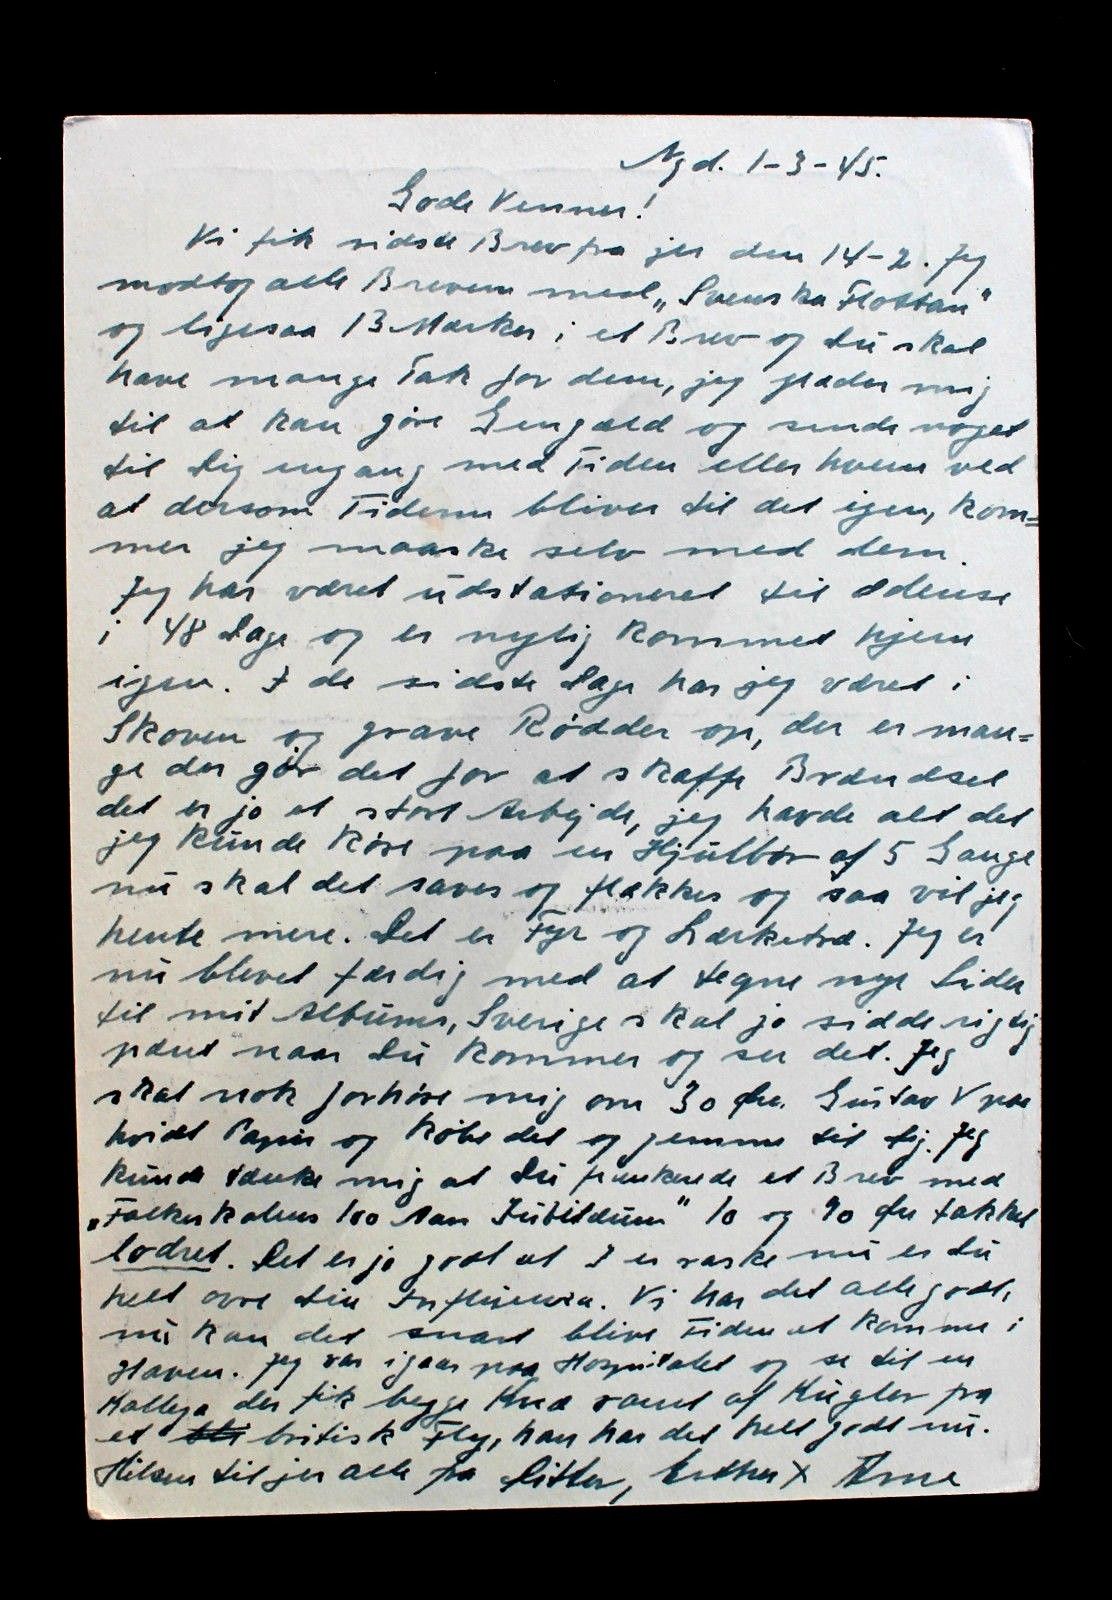 Ngd. 1-3-45.
Gode Venner!
Vi fik sidste Brev fra jer den 14-2. Jeg
modtog alle Brevene med „Svenska Flottan"
og ligesaa 13 Mærker i et Brev og Du skal
have mange Tak for dem, jeg glæder mig
til at kan gøre Gengæld og sende noget
til Dig engang med Tiden eller hvem ved
at dersom Tiderne bliver til det igen, kom=
mer jeg maaske selv med dem.
Jeg har været udstationeret til Odense
i 48 Dage og er nylig kommet hjem
igen. I de sidste Dage har jeg været i
Skoven og grave Rødder op, der er man=
ge der gør det for at skaffe Brændsel
det er jo et stort Arbejde, jeg havde alt det
jeg kunde køre paa en Hjulbør af 5 Gange
nu skal det saves og flækkes og saa vil jeg
hente mere. Det er Fyr og Lærketræ. Jeg er
nu blevet færdig med at tegne nye Sider
til mit Album, Sverige skal jo sidde rigtig
pænt naar Du kommer og ser det. Jeg
skal nok forhøre mig om 30 Øre Gustav V paa
hvidt Papir og købe det og gemme til Dig. Jeg
kunde tænke mig at Du frankerede et Brev med
„Folkeskolens 100 Aars Jubilæum" 10 og 90 Øre takket
lodret. Det er jo godt at I er raske nu er Du
helt ovre din Influenza. Vi har det alle godt,
nu kan det snart blive Tiden at komme i
Haven. Jeg var igaar paa Hospitalet og se til en
Kollega der fik begge Knæ ramt af Kugler fra
et britisk Fly, han har det helt godt nu.
Hilsen til jer alle fra Ditter, Esther x Arne